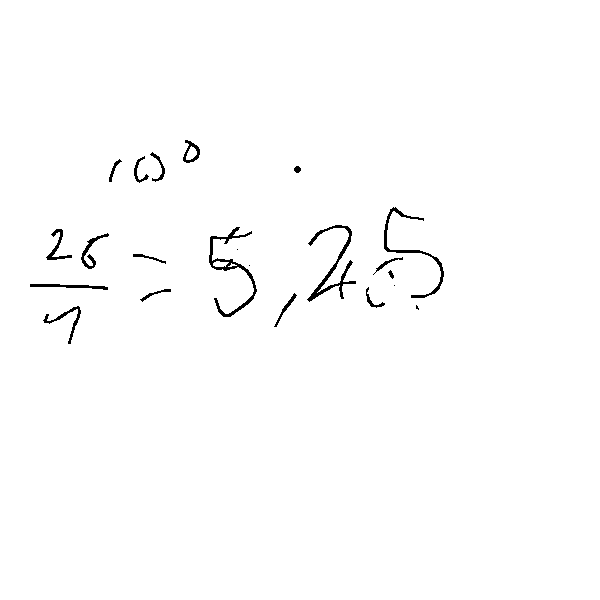 10⁰
26
4
= 5,25